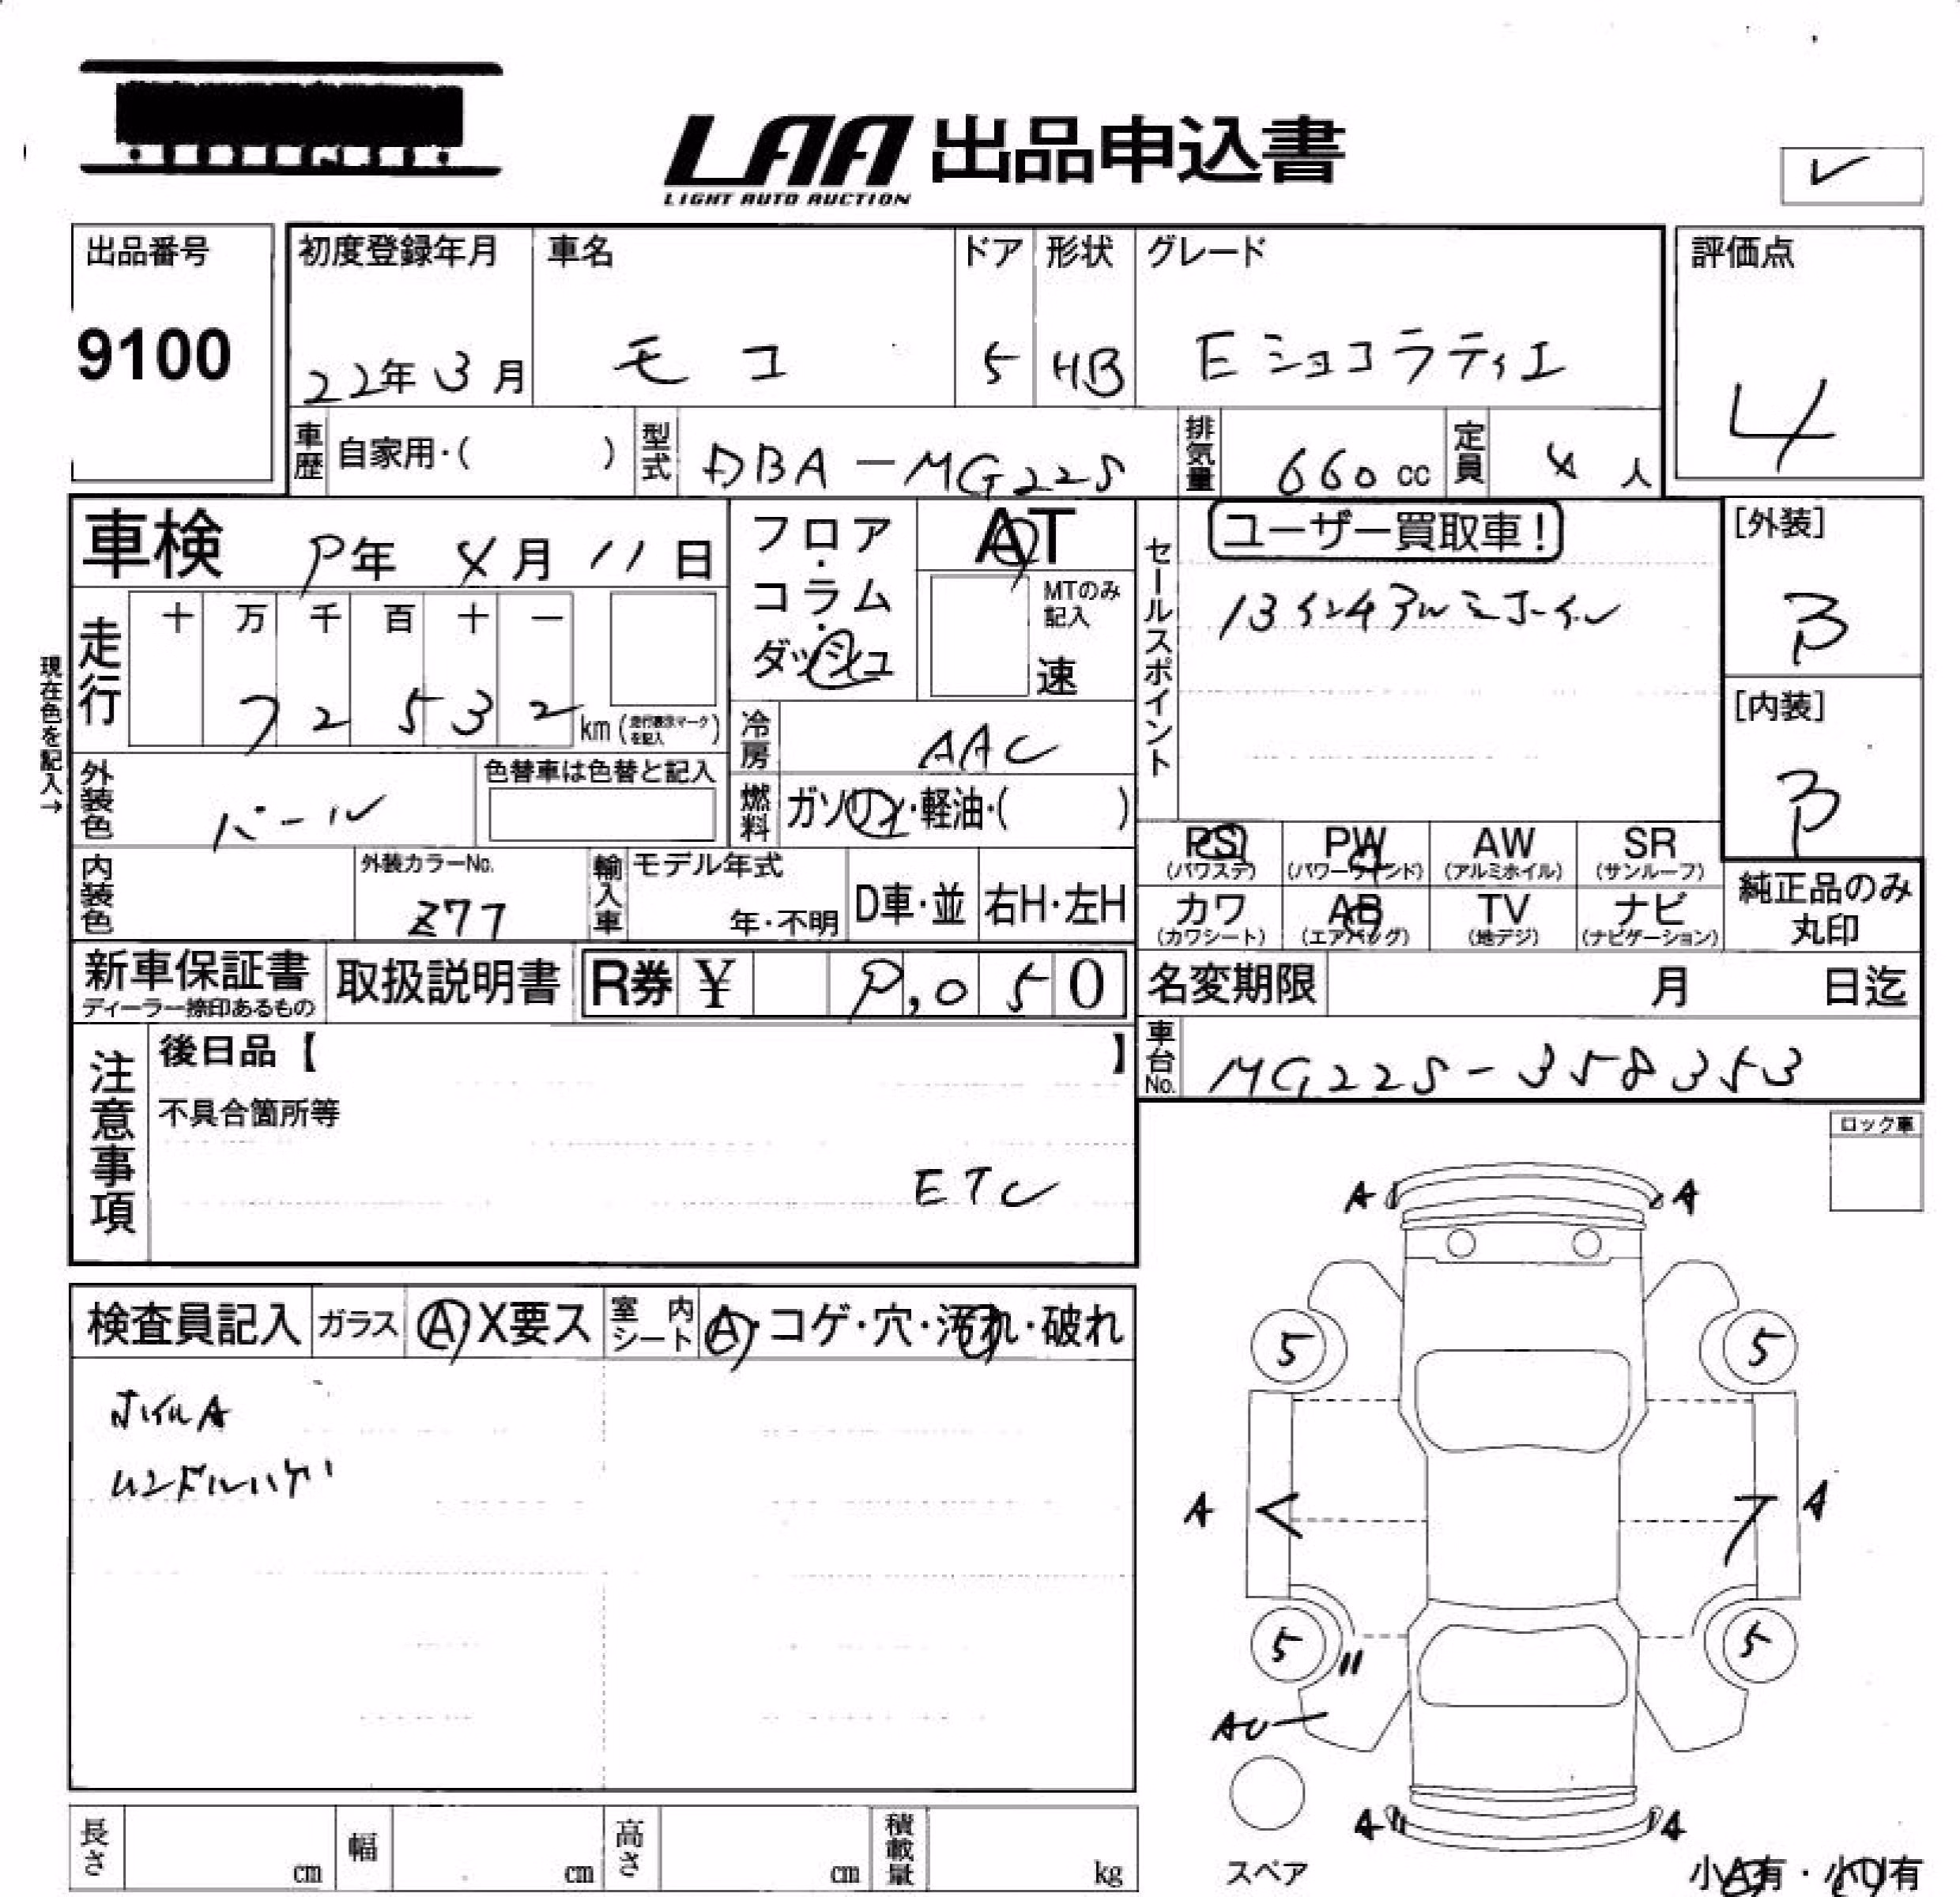 LAA 出品申込書
LIGHT AUTO AUCTION
出品番号
9100
初度登録年月
22年 3月
車名
モコ
ドア
5
形状
HB
グレード
Eショコラティエ
評価点
4
車歴 自家用・( )
型式 DBA-MG22S
排気量 660cc
定員 4人
車検 年 月 11日
フロア・コラム・ダッシュ
AT
MTのみ記入
速
セールスポイント
ユーザー買取車!
[外装]
B
現在色を記入→
走行
十 万 千 百 十 一
7 2 5 3 2 km(走行表示マークを記入)
[内装]
B
冷房 AAC
外装色 パール
色替車は色替と記入
燃料 ガソリン・軽油・( )
PS (パワステ)
PW (パワーウインド)
AW (アルミホイル)
SR (サンルーフ)
内装色
外装カラーNo.
Z77
輸入車 モデル年式
年・不明
D車・並
右H・左H
カワ (カワシート)
AB (エアバッグ)
TV (地デジ)
ナビ (ナビゲーション)
純正品のみ丸印
新車保証書
ディーラー捺印あるもの
取扱説明書
R券 ¥ ,050
名変期限 月 日迄
車台No. MG22S-358353
注意事項
後日品【 】
不具合箇所等
ETC
ロック車
検査員記入
ガラス A X要ス
室内シート A・コゲ・穴・汚れ・破れ
ホイルA
ハンドルハゲ
A A
5 5
A A
5 5
AU
A A
スペア
小A有・小U有
長さ cm
幅 cm
高さ cm
積載量 kg